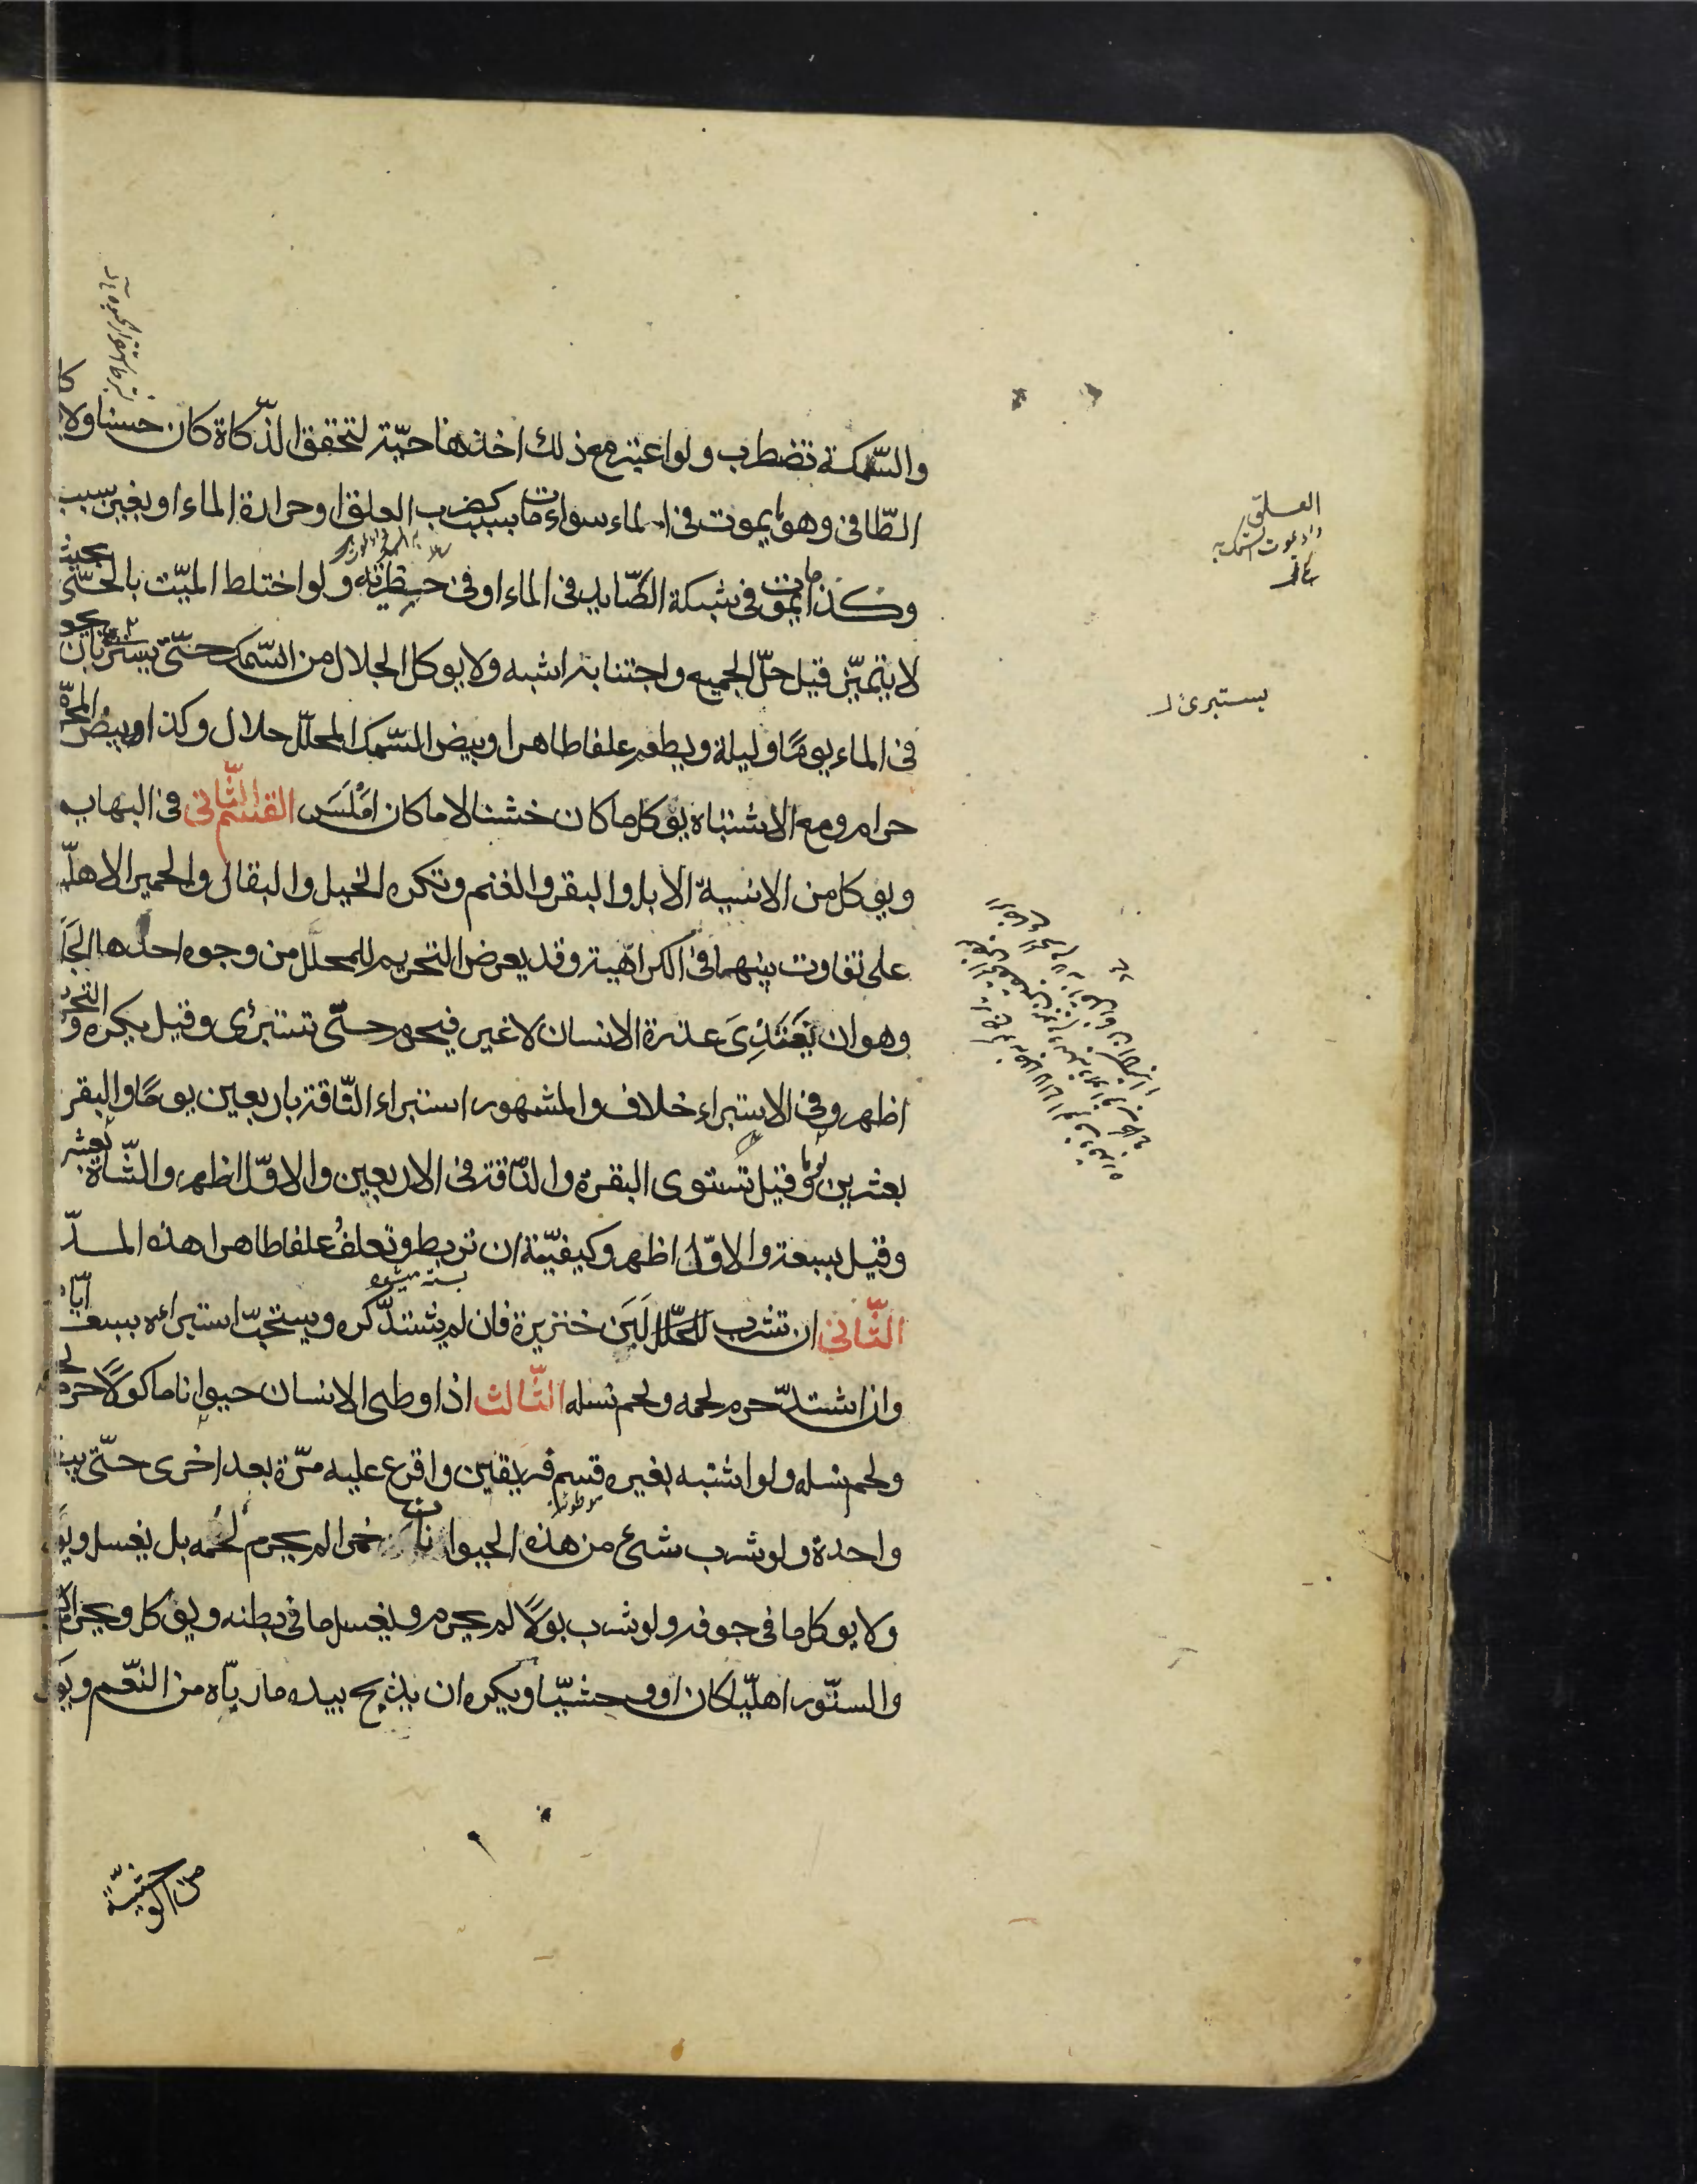 والسّمكة تضطرب ولو اعتبر مع ذلك اخذها حيّة لتحقق الذّكاة كان حسنا ولا يوكل
الطّافى وهو ما يموت فى الماء سواء مات بسبب كضرب العلق او حرارة الماء او بغير سبب
وكذا ما يموت فى شبكة الصّايد فى الماء او فى حظيرته ولو اختلط الميّت بالحىّ بحيث
لا يتميّز قيل حلّ الجميع واجتنابه اشبه ولا يوكل الجلال من السّمك حتّى يستبرئ بان يجعل
فى الماء يومًا وليلة ويطعم علفا طاهرا وبيض السّمك المحلّل حلال وكذا وبيض المحرّم
حرام ومع الاشتباه يؤكل ما كان خشنا لا ما كان امْلَسَ القسم الثّانى فى البهايم
ويوكل من الانسيّة الابل والبقر والغنم وتكره الخيل والبغال والحمير الاهليّة
على تفاوت بينهما فى الكراهية وقد يعرض التحريم للمحلل من وجوه احدها الجلل
وهو ان يَغتَذِىَ عذرة الانسان لا غير فيحرم حتّى تستبرئ وقيل يكره والتحريم
اظهر وفى الاستبراء خلاف والمشهور استبراء النّاقة باربعين يومًا والبقر
بعشرين يوما وقيل تستوى البقرة والنّاقة فى الاربعين والاوّل اظهر والشّاة بعشرة
وقيل بسبعة والاوّل اظهر وكيفيّته ان تربط وتعلف علفا طاهرا هذه المدّة
الثّانى ان تشرب المحلّل لَبَن خنزيرة فان لم يشتدّ كره ويستحبّ استبراءه بسبعة ايّام
وان اشتدّ حرم لحمه ولحم نسله الثّالث اذا وطى الانسان حيوانا ماكولًا حرم لحمه
ولحم نسله ولو اشتبه بغيره قسم فريقين واقرع عليه مرّة بعد اخرى حتّى يبقى
واحدة ولو شرب شىء من هذه الحيوانات خمرا لم يحرم لحمه بل يغسل ويؤكل
ولا يوكل ما فى جوفه ولو شرب بولًا لم يحرم ويغسل ما فى بطنه ويؤكل ويحرم الكلب
والسنّور اهليّا كان او وحشيّا ويكره ان يذبح بيده ما ربّاه من النعّم ويؤكل
من الوحشيّة
العلق
يستبرئ